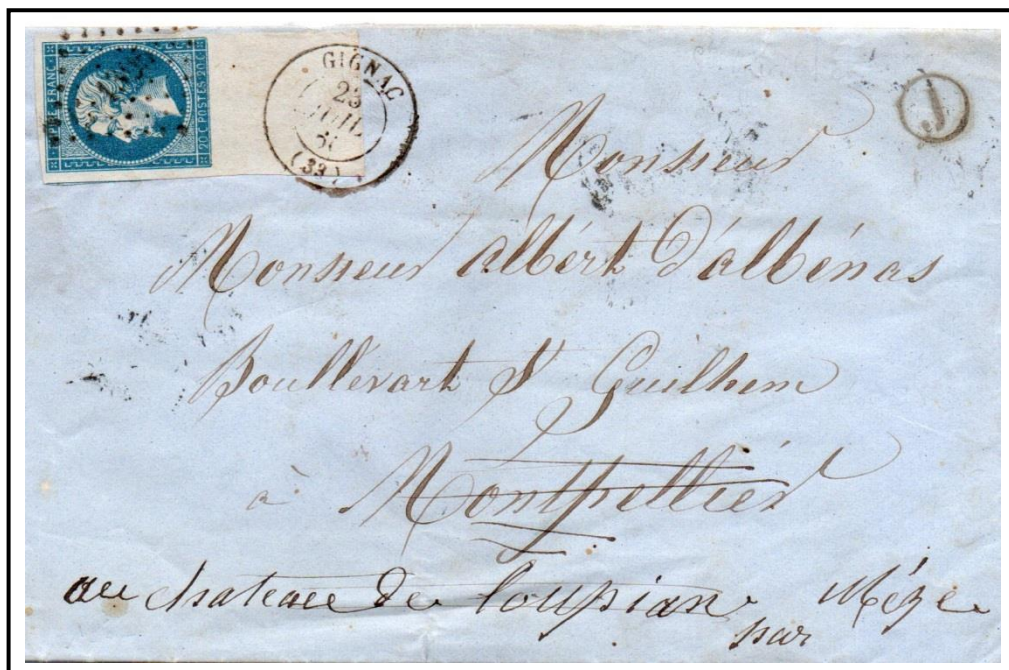 EMPIRE FRANC.
20 C. POSTES 20 C.
GIGNAC
23
JUIL
(33)
J
Monsieur
Monsieur albért d'albénas
Boullévart St Guilhem
à Montpelliér
au chateau de loupian par Méze